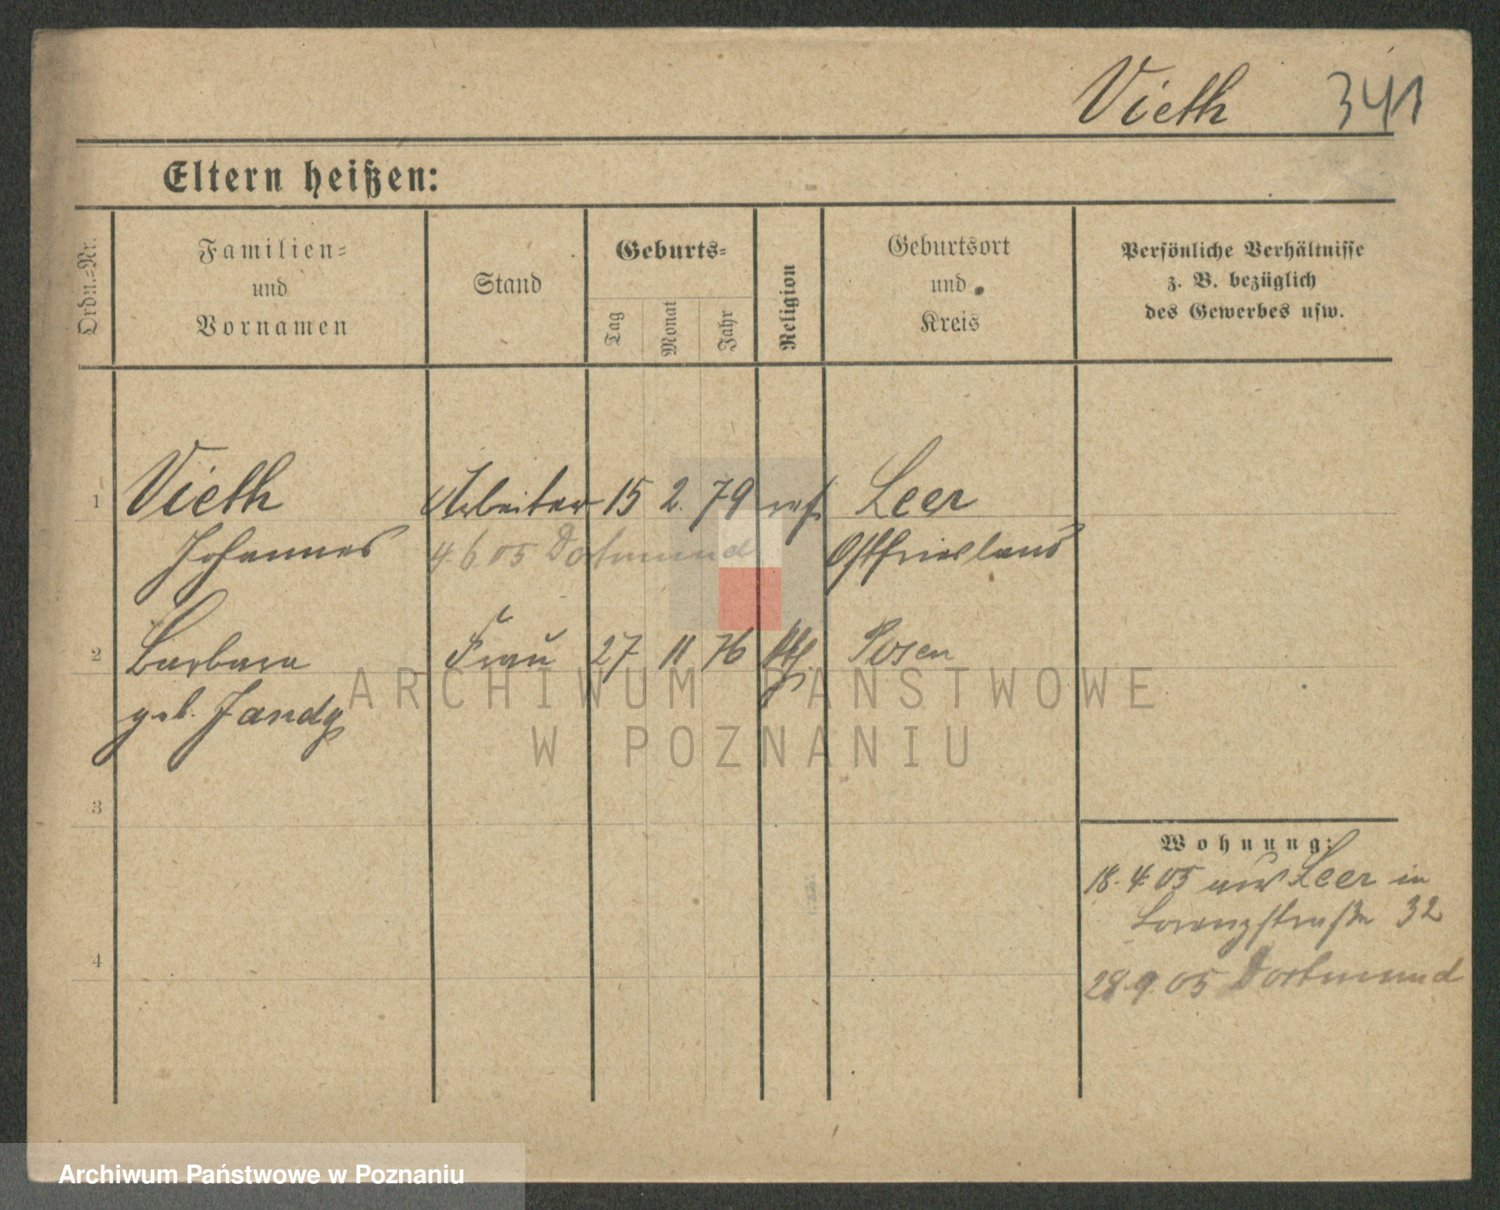 Vieth 341
Eltern heißen:
Ordn.-Nr.
Familien-
und
Vornamen
Stand
Geburts-
Tag
Monat
Jahr
Religion
Geburtsort
und
Kreis
Persönliche Verhältnisse
z. B. bezüglich
des Gewerbes usw.
1 Vieth Arbeiter 15 2. 79 ref. Leer
Johannes 4.6.05 Dortmund Ostfriesland
2 Barbara Frau 27 11 76 kth. Posen
geb. Jandy
ARCHIWUM PAŃSTWOWE
W POZNANIU
3
Wohnung:
18.4.05 aus Leer in
Lorenzstraße 32
4
28.9.05 Dortmund
Archiwum Państwowe w Poznaniu